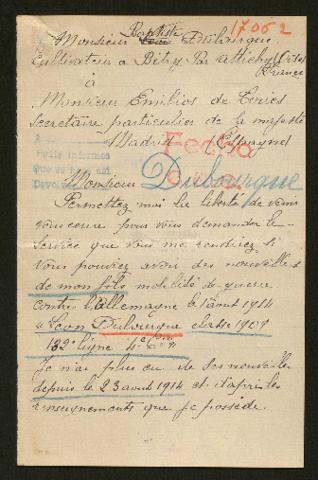 17062
Monsieur Baptiste Dubourgue
Cultivateur a Bitry Par Attichy (Oise)
France
à
Monsieur Emilios de Torres
Secretaire particulier de sa majesté
Madrid (Espagne)
Fecha
Dubourgue
Monsieur
Permettez moi la liberté de venir
vous ecrire pour vous demander le
service que vous me rendriez si
vous pouviez avoir des nouvelles
de mon fils mobilisé de guerre
contre l'allemagne le 1 aout 1914
Leon Dubourgue classe 1909
132e ligne 4e Cie
Je n'ai plus eu de ses nouvelles
depuis le 23 aout 1914 et d'après les
renseignements que je possède.